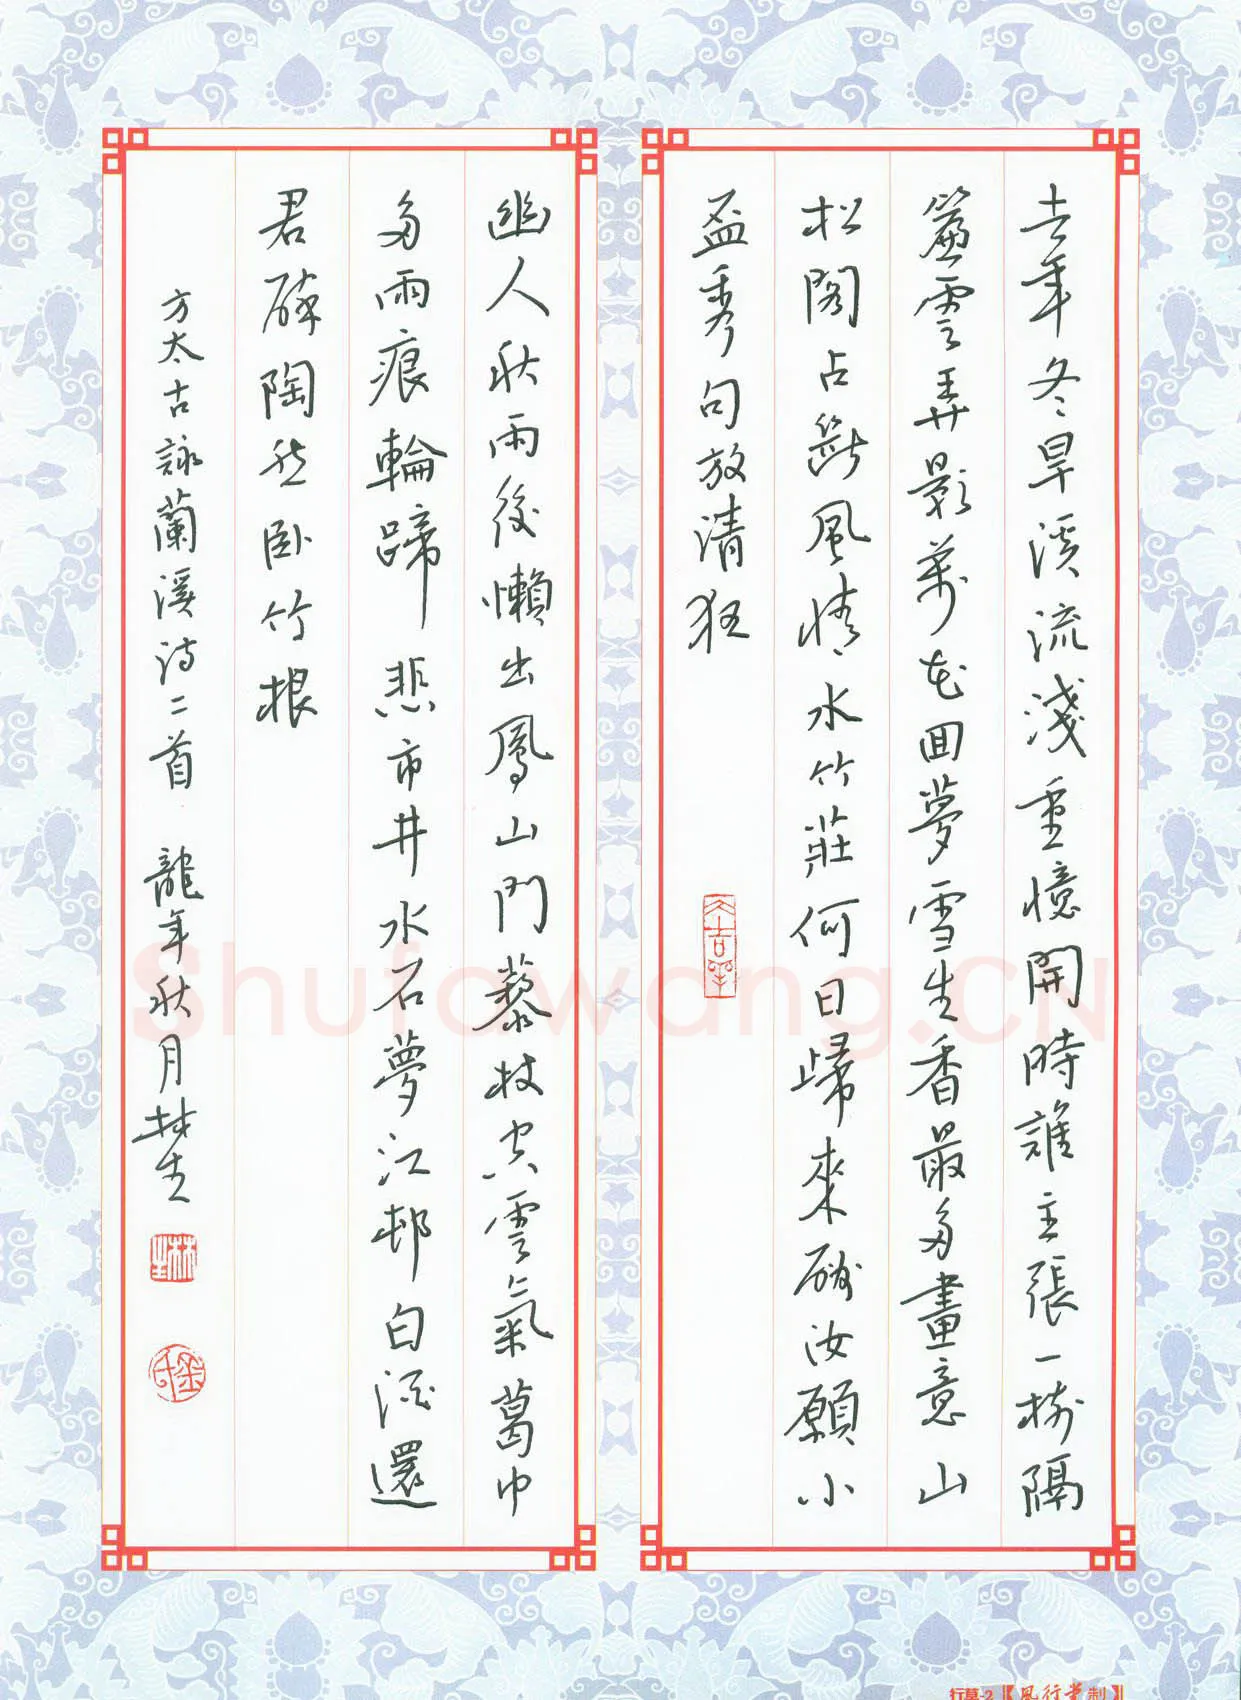 去年冬旱溪流淺重憶開時誰主張一樹隔
簾雲弄影萬花回夢雪生香最多畫意山
松閣占斷風情水竹莊何日歸來酬汝願小
盃秀句放清狂
幽人秋雨後懶出鳳山門藜杖穿雲氣葛巾
多雨痕輪蹄悲市井水石夢江邨白酒還
君醉陶然卧竹根
方太古詠蘭溪詩二首 龍年秋月林生
Shufawang.CN
行草-2【風行笔制】